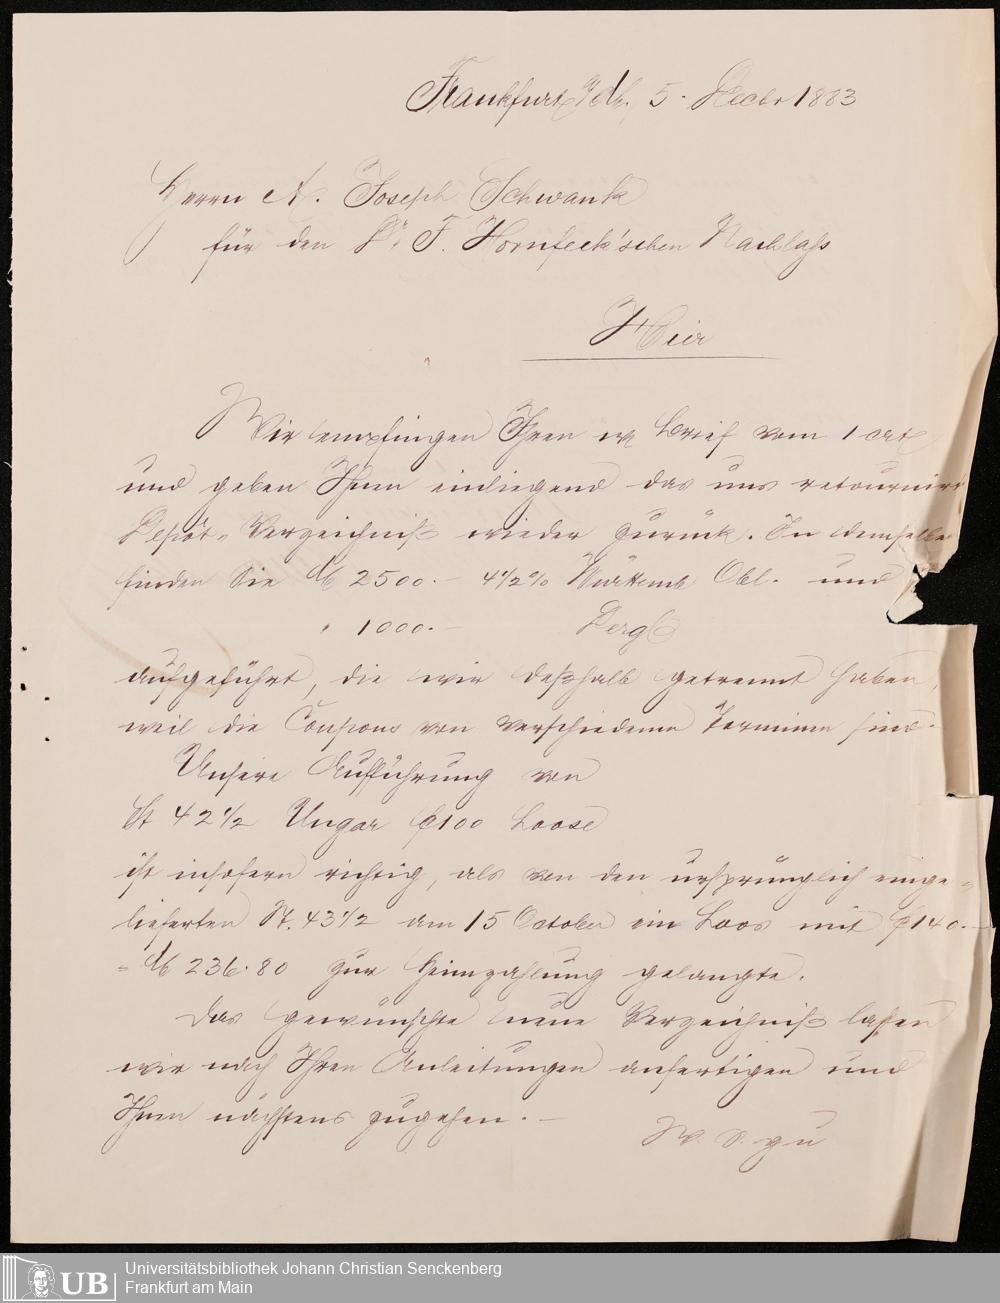 Frankfurt a/M. 5. Decbr 1883
Herrn A. Joseph Schwank
für den Dr. F. Hornfeck'schen Nachlaß
Hier
Wir empfingen Ihren w Brief vom 1 crt
und geben Ihnen einliegend das uns retournirt
Depôt-Verzeichniß wieder zurück. In demselben
finden Sie M 2500.- 4 1/2 % Württemb Obl. und
" 1000.- Dergl
aufgeführt, die wir deßhalb getrennt haben,
weil die Coupons von verschiedenen Terminen sind.
Unsere Aufführung von
St 42 1/2 Ungar f 100 Loose
ist insofern richtig, als von den ursprünglich einge=
lieferten St. 43 1/2 am 15 October ein Loos mit f 140.-
= M 236.80 zur Heimzahlung gelangte.
Das gewünschte neue Verzeichniß lassen
wir nach Ihren Anleitungen anfertigen und
Ihnen nächstens zugehen.-
UB
Universitätsbibliothek Johann Christian Senckenberg
Frankfurt am Main